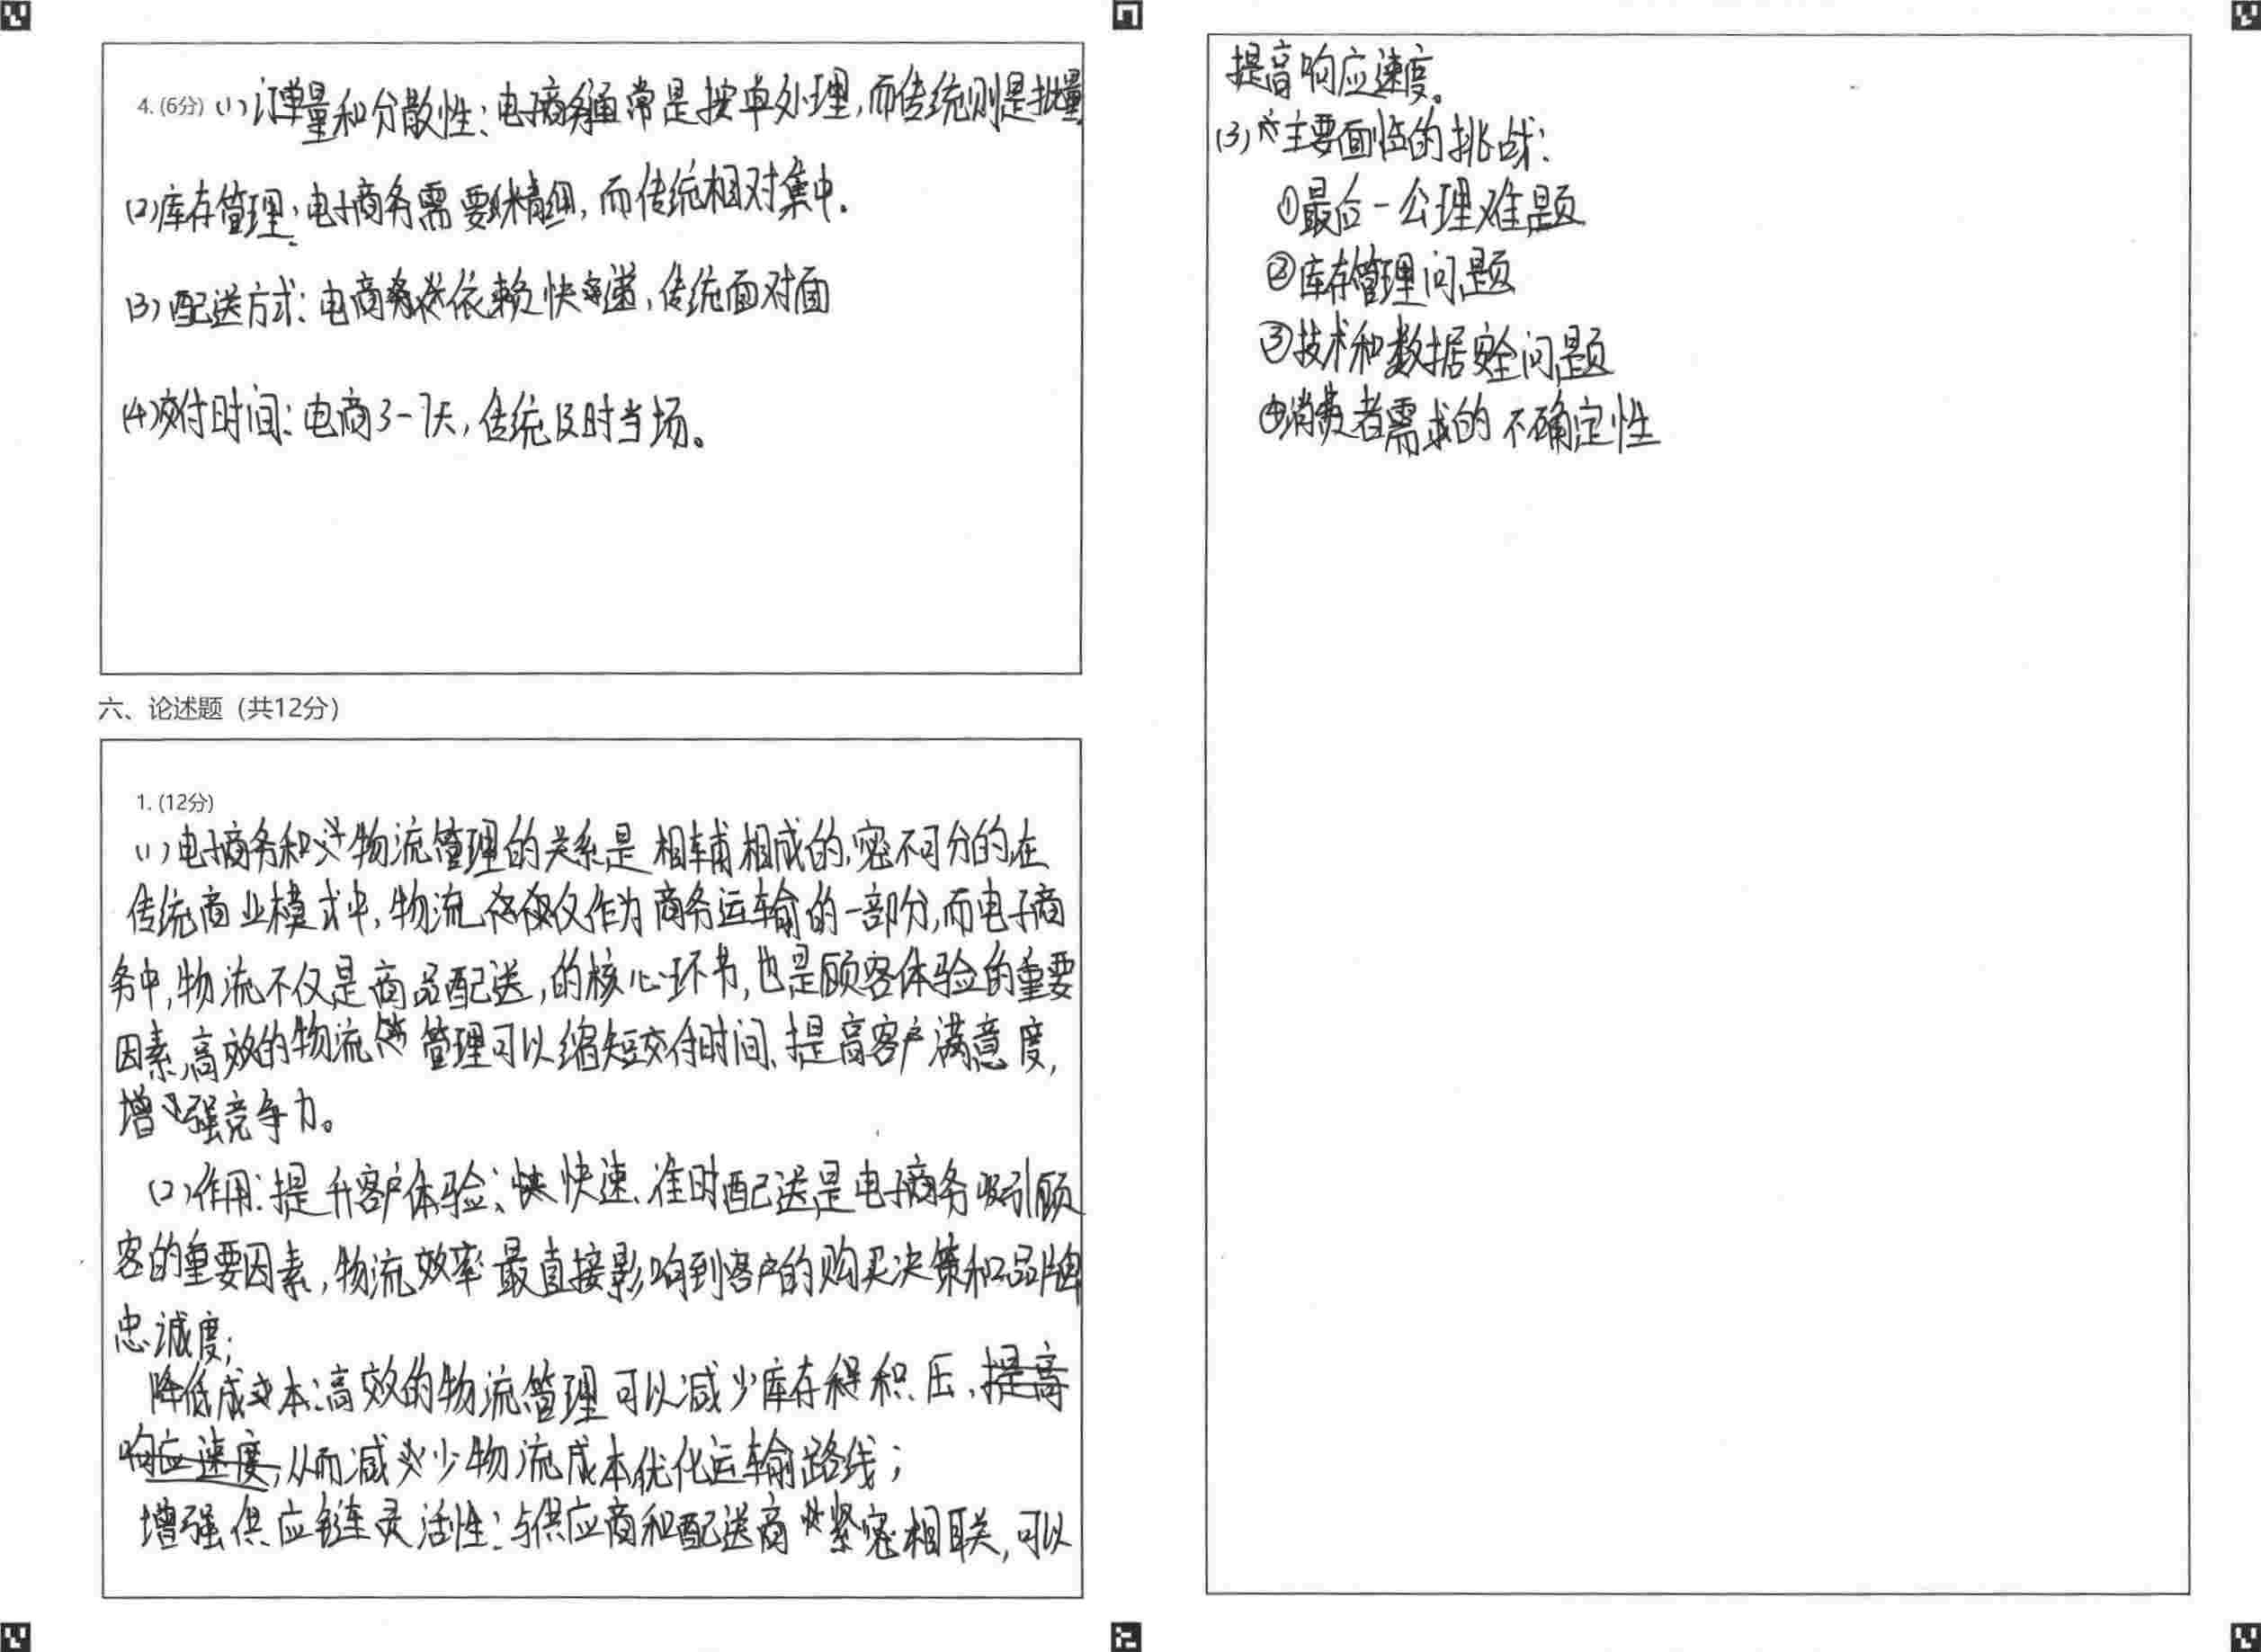 4. (6分) (1) 订单量和分散性:电子商务通常是按单处理,而传统则是批量
(2)库存管理:电子商务需要精细,而传统相对集中.
(3)配送方式:电商依赖快递,传统面对面
(4)交付时间:电商3-7天,传统及时当场。
六、论述题(共12分)
1. (12分)
(1)电子商务和物流管理的关系是相辅相成的,密不可分的,在
传统商业模式中,物流仅作为商务运输的一部分,而电子商
务中,物流不仅是商品配送,的核心环节,也是顾客体验的重要
因素,高效的物流管理可以缩短交付时间、提高客户满意度,
增强竞争力。
(2)作用:提升客户体验:快速、准时配送是电子商务吸引顾
客的重要因素,物流效率最直接影响到客户的购买决策和品牌
忠诚度;
降低成本:高效的物流管理可以减少库存积压,
从而减少物流成本优化运输路线;
增强供应链灵活性:与供应商和配送商紧密相联,可以
提高响应速度。
(3)主要面临的挑战:
①最后一公理难题
②库存管理问题
③技术和数据安全问题
④消费者需求的不确定性